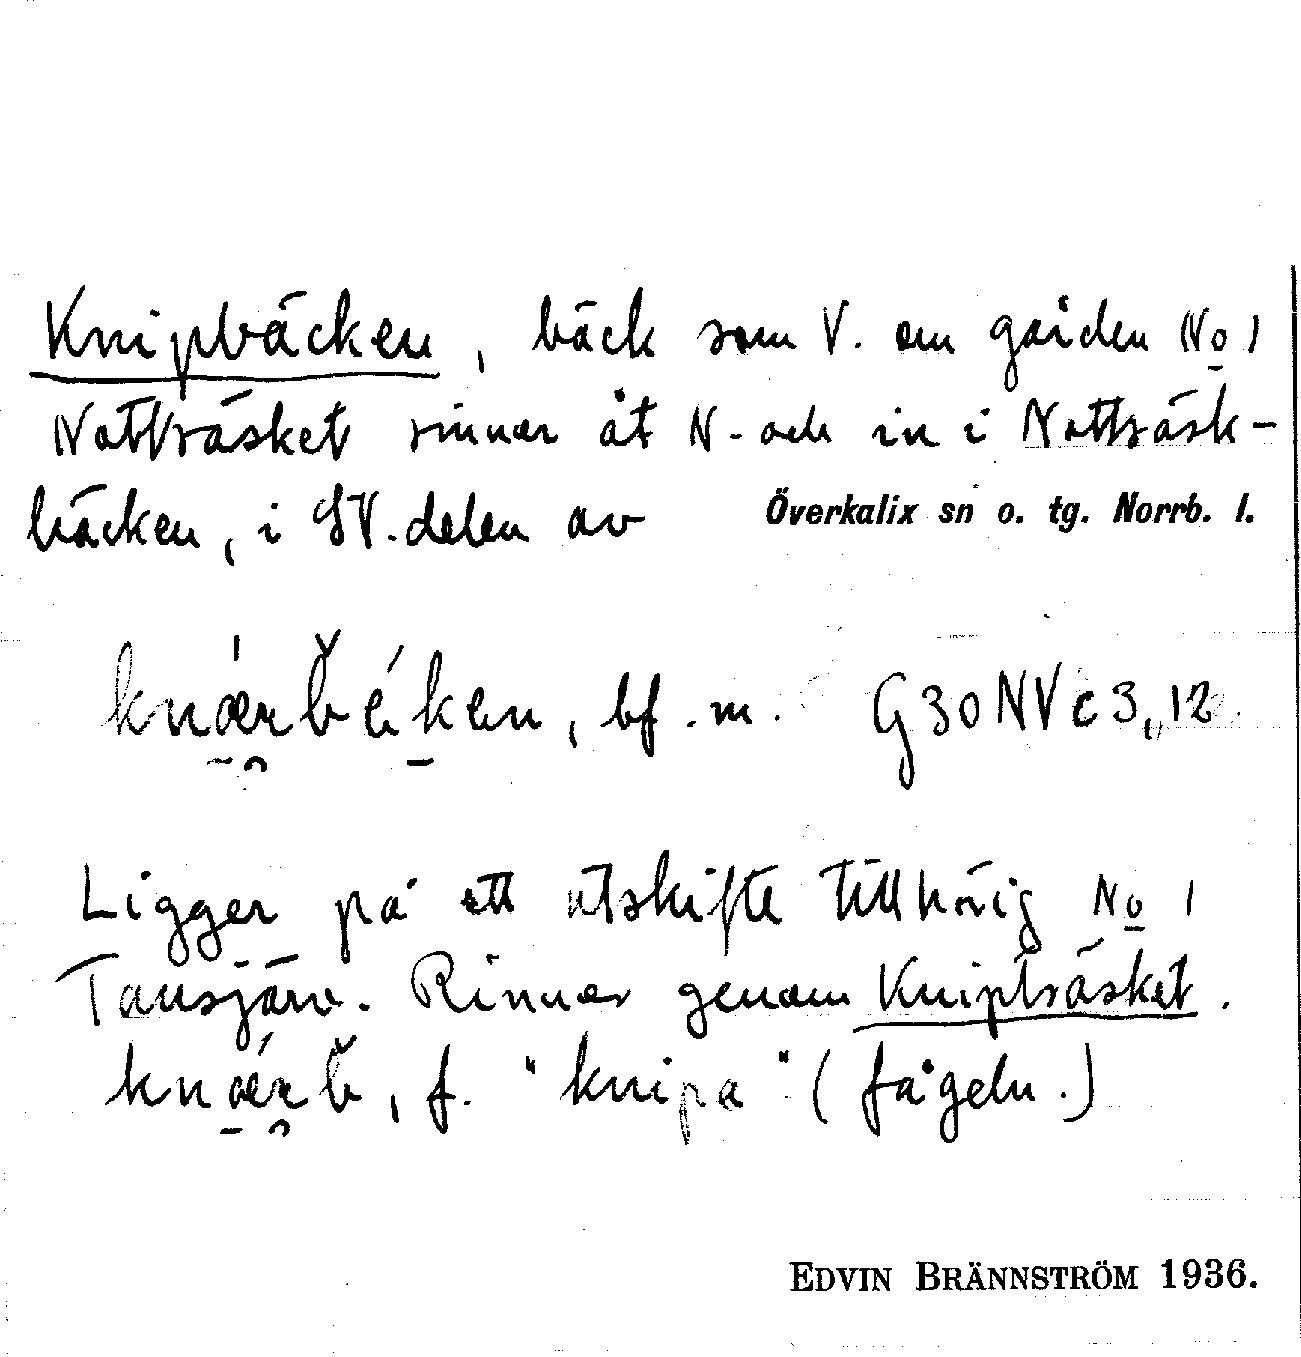 Knipbäcken, bäck som V. om gården No 1
Nottträsket rinner åt N. och in i Nottträsk-
bäcken, i SV. delen av Överkalix sn o. tg. Norrb. l.
bf. m. G30NVc3,,12
Ligger på ett utskifte tillhörig No 1
Tansjärv. Rinner genom Knipträsket.
f. "knipa" (fågeln.)
EDVIN BRÄNNSTRÖM 1936.